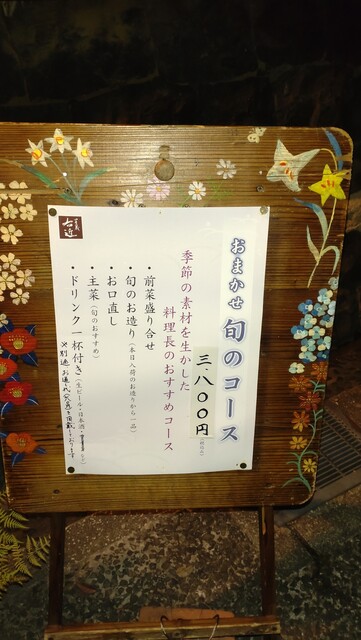 おまかせ 旬のコース
三、八〇〇円(税込み)
季節の素材を生かした
料理長のおすすめコース
・前菜盛り合せ
・旬のお造り(本日入荷のお造りから一品)
・お口直し
・主菜(旬のおすすめ)
・ドリンク一杯付き(生ビール・日本酒・
※別途お通し代